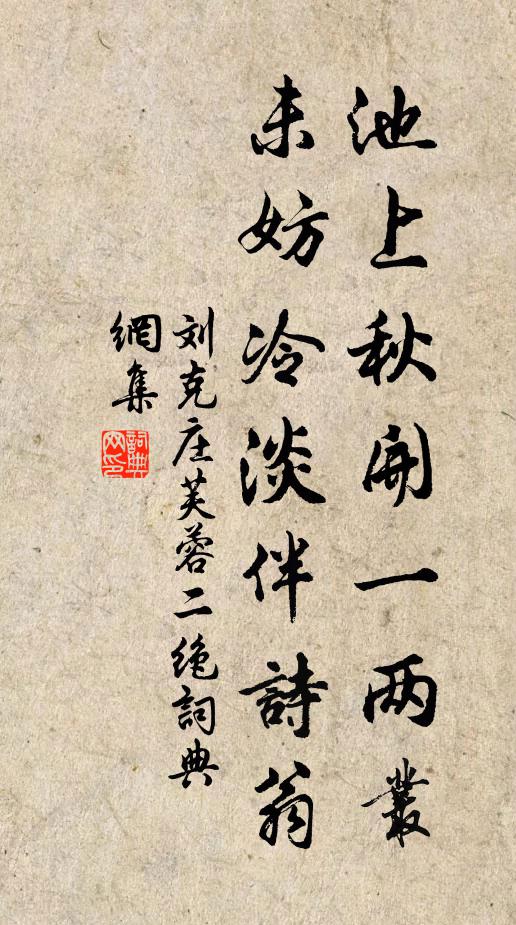 池上秋開一两叢
未妨冷淡伴詩翁
刘克庄芙蓉二绝詞典
網集
詞典网印